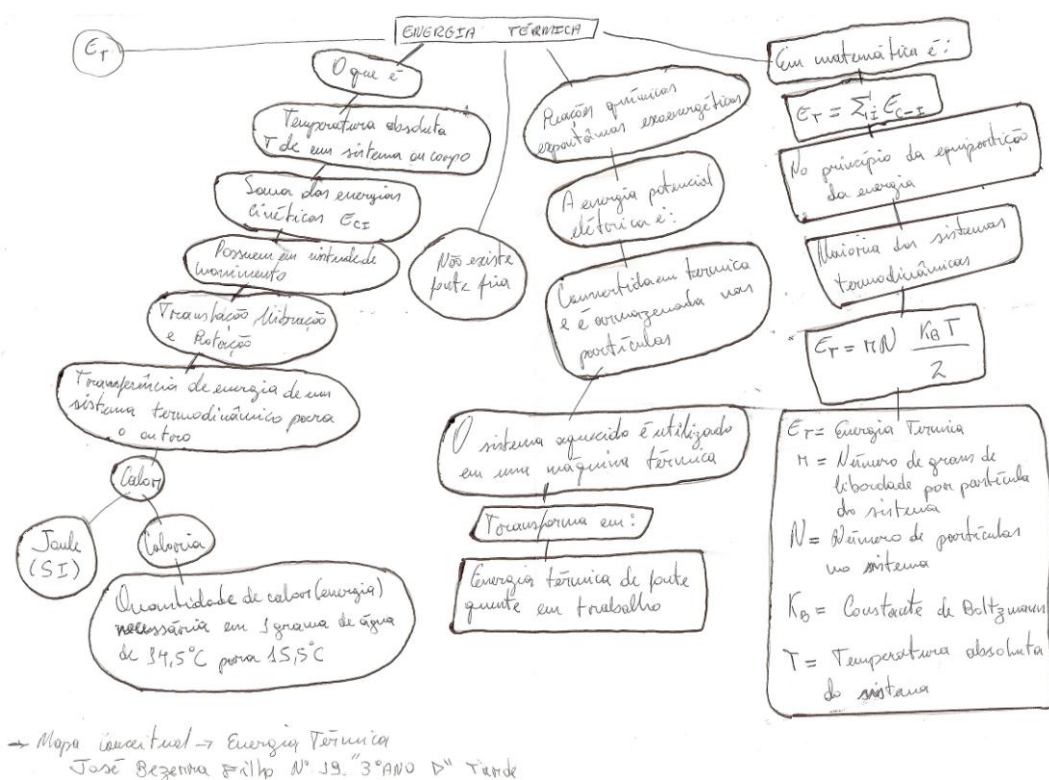 ENERGIA TÉRMICA
E_T
O que é
Temperatura absoluta
T de um sistema ou corpo
Soma das energias
Cinéticas E_CI
Possuem em virtude de
movimento
Translação Vibração
e Rotação
Transferência de energia de um
sistema termodinâmico para
o outro
Calor
Joule
(SI)
Caloria
Quantidade de calor (energia)
necessária em 1 grama de água
de 14,5°C para 15,5°C
Não existe
fonte fria
Reações químicas
espontâneas exoenergéticas
A energia potencial
elétorica é:
Convertida em termica
e é armazenada nas
partículas
O sistema aquecido é utilizado
em uma máquina térmica
Transforma em:
Energia térmica de fonte
quente em trabalho
Em matemática é:
E_T = Σ_i E_C-I
No princípio da equipartição
da energia
Maioria dos sistemas
termodinâmicos
E_T = nN K_B T / 2
E_T = Energia Termica
n = Número de graus de
liberdade por partícula
do sistema
N = Número de partículas
no sistema
K_B = Constante de Boltzmann
T = Temperatura absoluta
do sistema
→ Mapa conceitual → Energia Térmica
José Bezerra Filho N° 19. "3° ANO D" Tarde